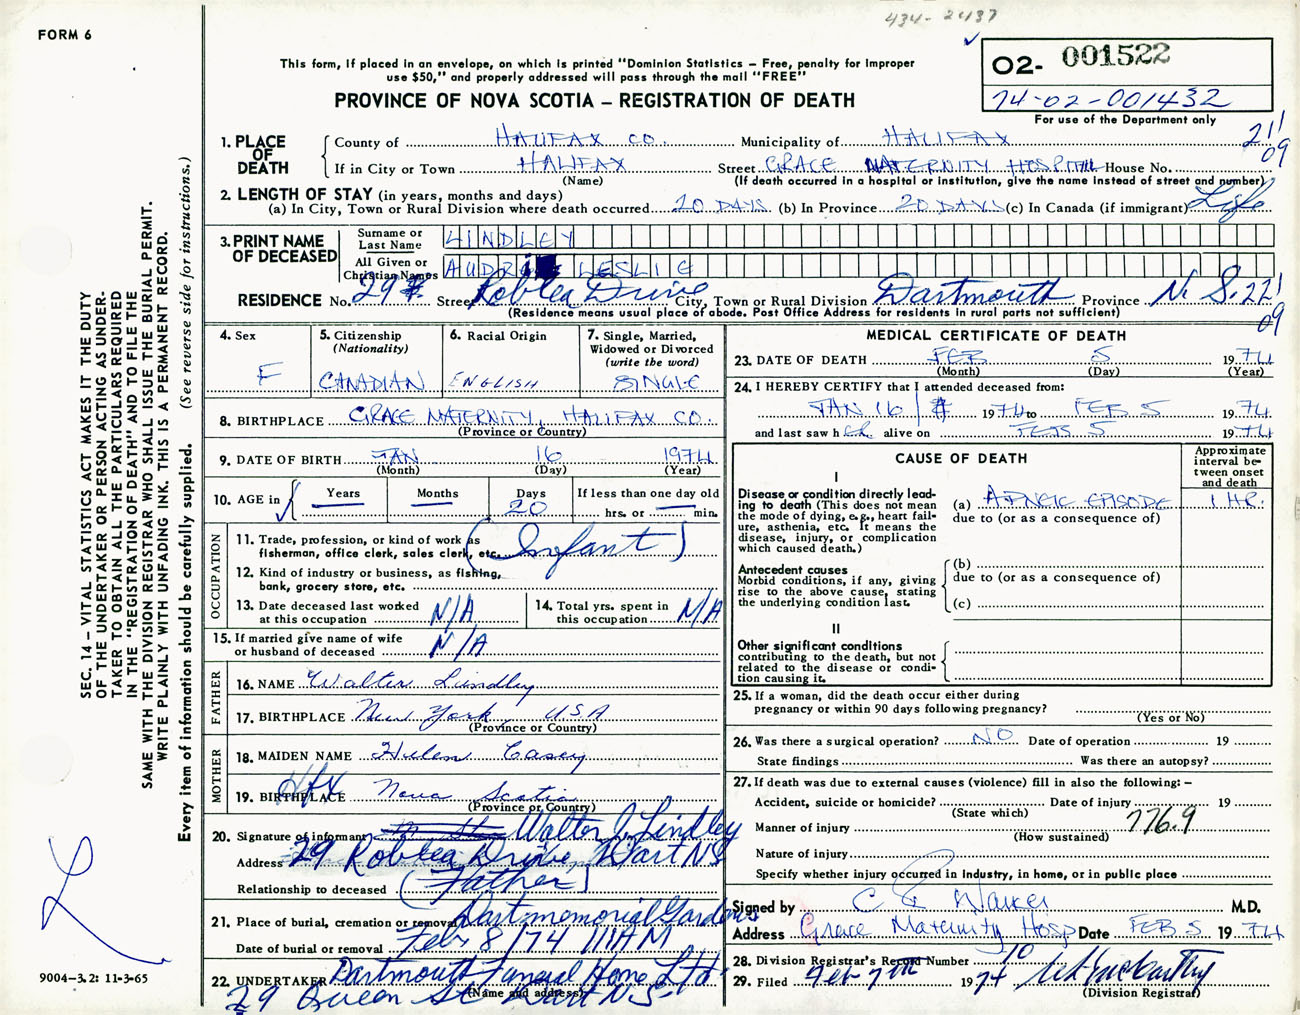 434-2437
FORM 6
This form, if placed in an envelope, on which is printed "Dominion Statistics – Free, penalty for improper
use $50," and properly addressed will pass through the mail "FREE"
PROVINCE OF NOVA SCOTIA – REGISTRATION OF DEATH
02- 001522
74-02-001432
For use of the Department only
211
09
1. PLACE OF DEATH
County of HALIFAX CO. Municipality of HALIFAX
If in City or Town HALIFAX Street GRACE MATERNITY HOSPITAL House No.
(Name) (If death occurred in a hospital or institution, give the name instead of street and number)
2. LENGTH OF STAY (in years, months and days)
(a) In City, Town or Rural Division where death occurred 20 DAYS (b) In Province 20 DAYS (c) In Canada (if immigrant) Life
3. PRINT NAME OF DECEASED
Surname or Last Name LINDLEY
All Given or Christian Names LESLIE
RESIDENCE No. 29 Street Roblea Drive City, Town or Rural Division Dartmouth Province N.S. 221
09
(Residence means usual place of abode. Post Office Address for residents in rural parts not sufficient)
4. Sex F
5. Citizenship (Nationality) CANADIAN
6. Racial Origin ENGLISH
7. Single, Married, Widowed or Divorced (write the word) SINGLE
8. BIRTHPLACE GRACE MATERNITY, HALIFAX CO.
(Province or Country)
9. DATE OF BIRTH JAN 16 1974
(Month) (Day) (Year)
10. AGE in Years — Months — Days 20 If less than one day old hrs. or — min.
OCCUPATION
11. Trade, profession, or kind of work as fisherman, office clerk, sales clerk, etc. (Infant)
12. Kind of industry or business, as fishing, bank, grocery store, etc.
13. Date deceased last worked at this occupation N/A
14. Total yrs. spent in this occupation N/A
15. If married give name of wife or husband of deceased N/A
FATHER
16. NAME Walter Lindley
17. BIRTHPLACE New York, USA
(Province or Country)
MOTHER
18. MAIDEN NAME Helen Casey
19. BIRTHPLACE Hfx Nova Scotia
(Province or Country)
20. Signature of informant Walter J. Lindley
Address 29 Roblea Drive, Dart NS
Relationship to deceased (Father)
21. Place of burial, cremation or removal Dart memorial Gardens
Date of burial or removal Feb 8/74 11 AM
22. UNDERTAKER Dartmouth Funeral Home Ltd
(Name and address)
29 Queen St Dart N.S.
MEDICAL CERTIFICATE OF DEATH
23. DATE OF DEATH FEB 5 1974
(Month) (Day) (Year)
24. I HEREBY CERTIFY that I attended deceased from:
JAN 16 1974 to FEB 5 1974
and last saw her alive on FEB 5 1974
CAUSE OF DEATH
Approximate interval between onset and death
I
Disease or condition directly leading to death (This does not mean the mode of dying, e.g., heart failure, asthenia, etc. It means the disease, injury, or complication which caused death.)
(a) APNEIC EPISODE 1 HR.
due to (or as a consequence of)
Antecedent causes
Morbid conditions, if any, giving rise to the above cause, stating the underlying condition last.
(b)
due to (or as a consequence of)
(c)
II
Other significant conditions
contributing to the death, but not related to the disease or condition causing it.
25. If a woman, did the death occur either during pregnancy or within 90 days following pregnancy?
(Yes or No)
26. Was there a surgical operation? NO Date of operation 19
State findings Was there an autopsy?
27. If death was due to external causes (violence) fill in also the following: –
Accident, suicide or homicide? Date of injury 19
(State which)
Manner of injury 776.9
(How sustained)
Nature of injury
Specify whether injury occurred in industry, in home, or in public place
Signed by M.D.
Address Grace Maternity Hosp Date FEB 5 1974
28. Division Registrar's Record Number 10
29. Filed Feb 7th 1974
(Division Registrar)
SEC. 14 – VITAL STATISTICS ACT MAKES IT THE DUTY
OF THE UNDERTAKER OR PERSON ACTING AS UNDERTAKER
TO OBTAIN ALL THE PARTICULARS REQUIRED
IN THE "REGISTRATION OF DEATH" AND TO FILE THE
SAME WITH THE DIVISION REGISTRAR WHO SHALL ISSUE THE BURIAL PERMIT.
WRITE PLAINLY WITH UNFADING INK. THIS IS A PERMANENT RECORD.
Every item of information should be carefully supplied. (See reverse side for instructions.)
9004-3.2: 11-3-65